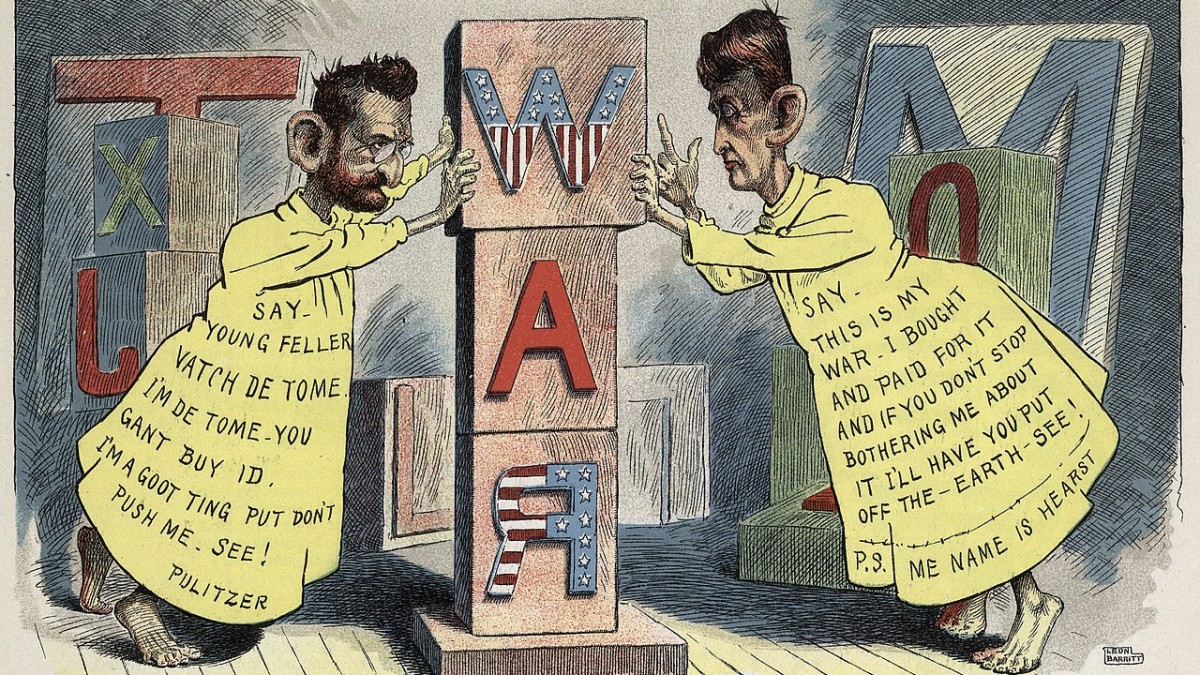 T
X
J
SAY-
YOUNG FELLER
VATCH DE TOME.
I'M DE TOME-YOU
GANT BUY ID.
I'M A GOOT TING PUT DON'T
PUSH ME. SEE!
PULITZER
L
W
A
Я
M
SAY-
THIS IS MY
WAR-I BOUGHT
AND PAID FOR IT
AND IF YOU DON'T STOP
BOTHERING ME ABOUT
IT I'LL HAVE YOU PUT
OFF THE-EARTH-SEE!
P.S. ME NAME IS HEARST
LEON
BARRITT